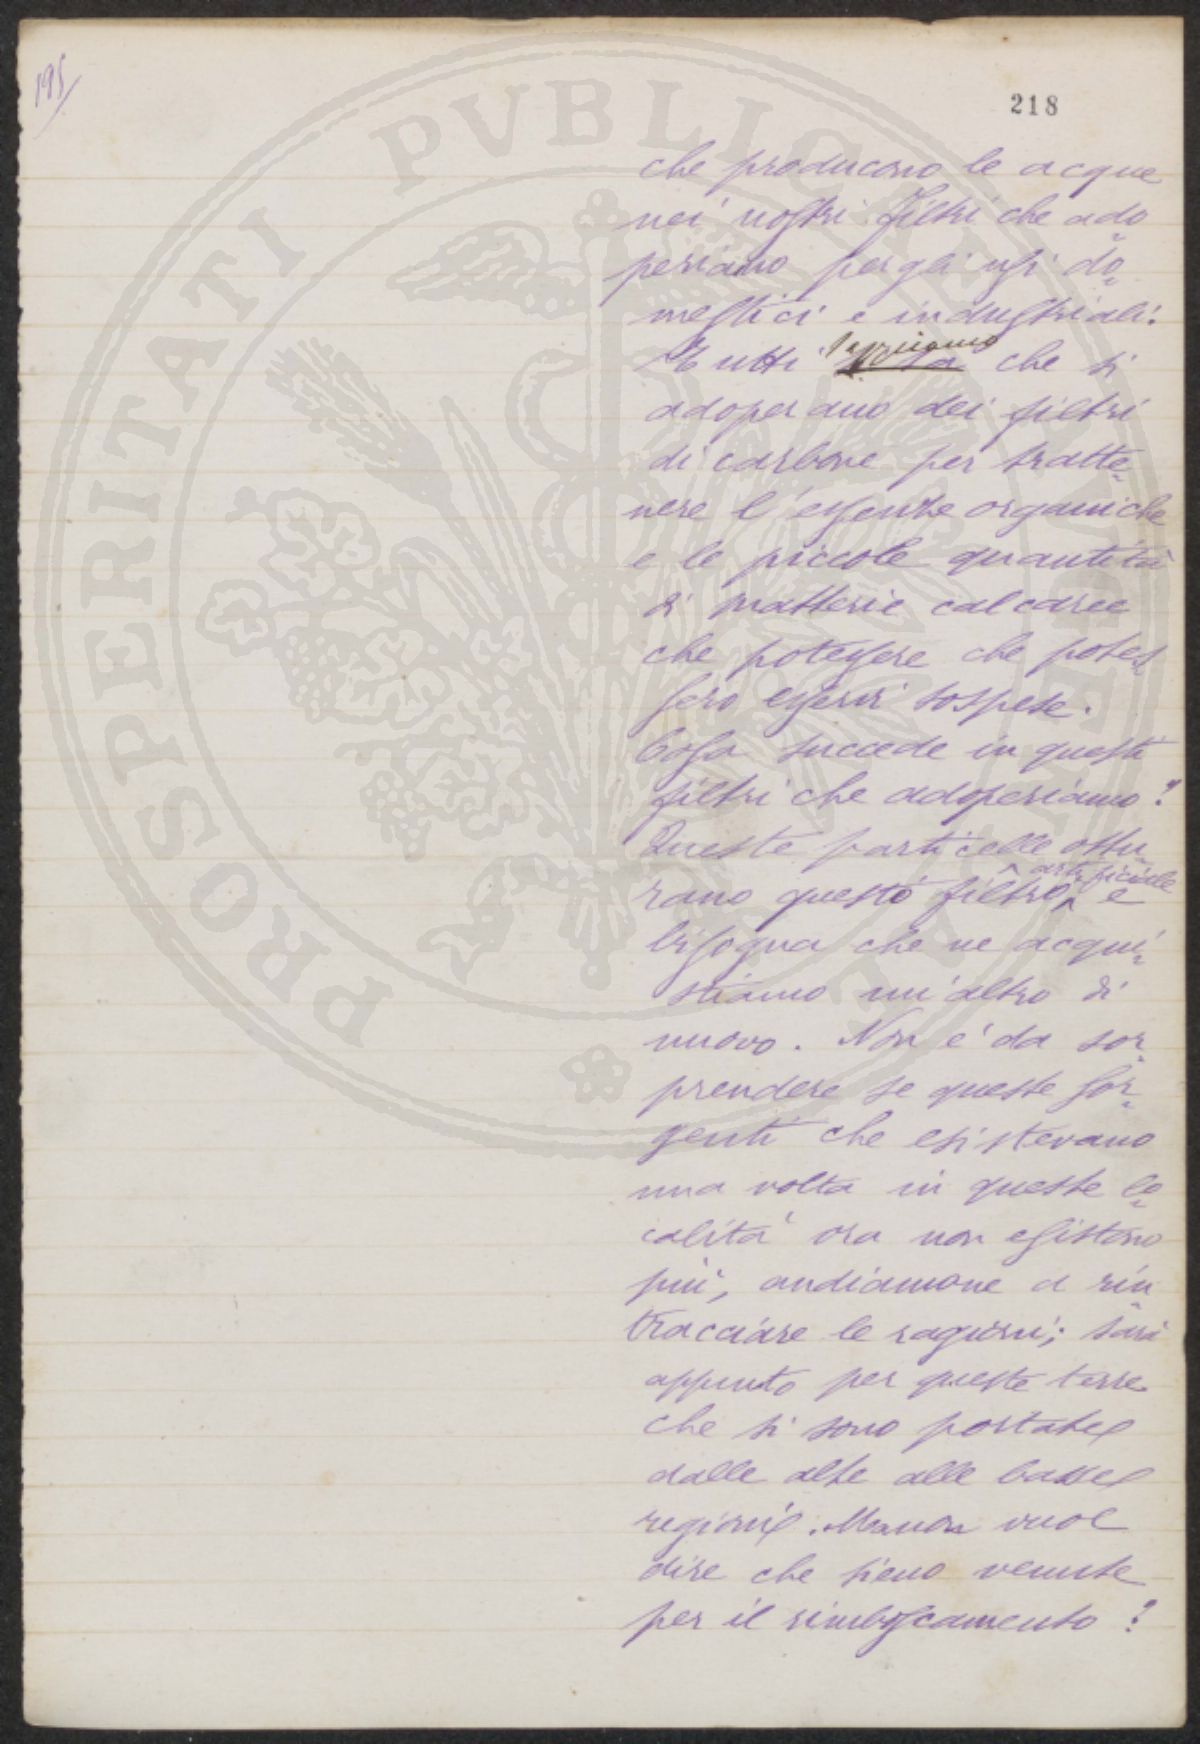 195/
218
che producono le acque
nei nostri filtri che ado
periamo per gli usi do=
mestici e industriali.
Tutti sappiamo che si
adoperano dei filtri
di carbone per tratte=
nere l'essenze organiche
e le piccole quantità
di matterie calcaree
che potessere che potes
sero esservi sospese.
Cosa succede in questi
filtri che adoperiamo?
Queste particelle ottu
rano questo filtro artificiale e
bisogna che ne acqui=
stiamo un'altro di
nuovo. Non è da sor=
prendere se queste sor=
genti che esistevano
una volta in queste lo=
calità ora non esistono
più, andiamone a rin
tracciare le ragioni; sarà
appunto per queste terre
che si sono portate
dalle alte alle basse
regioni. Ma non vuol
dire che sieno venute
per il rimboscamento?
PROSPERITATI PVBLICAE